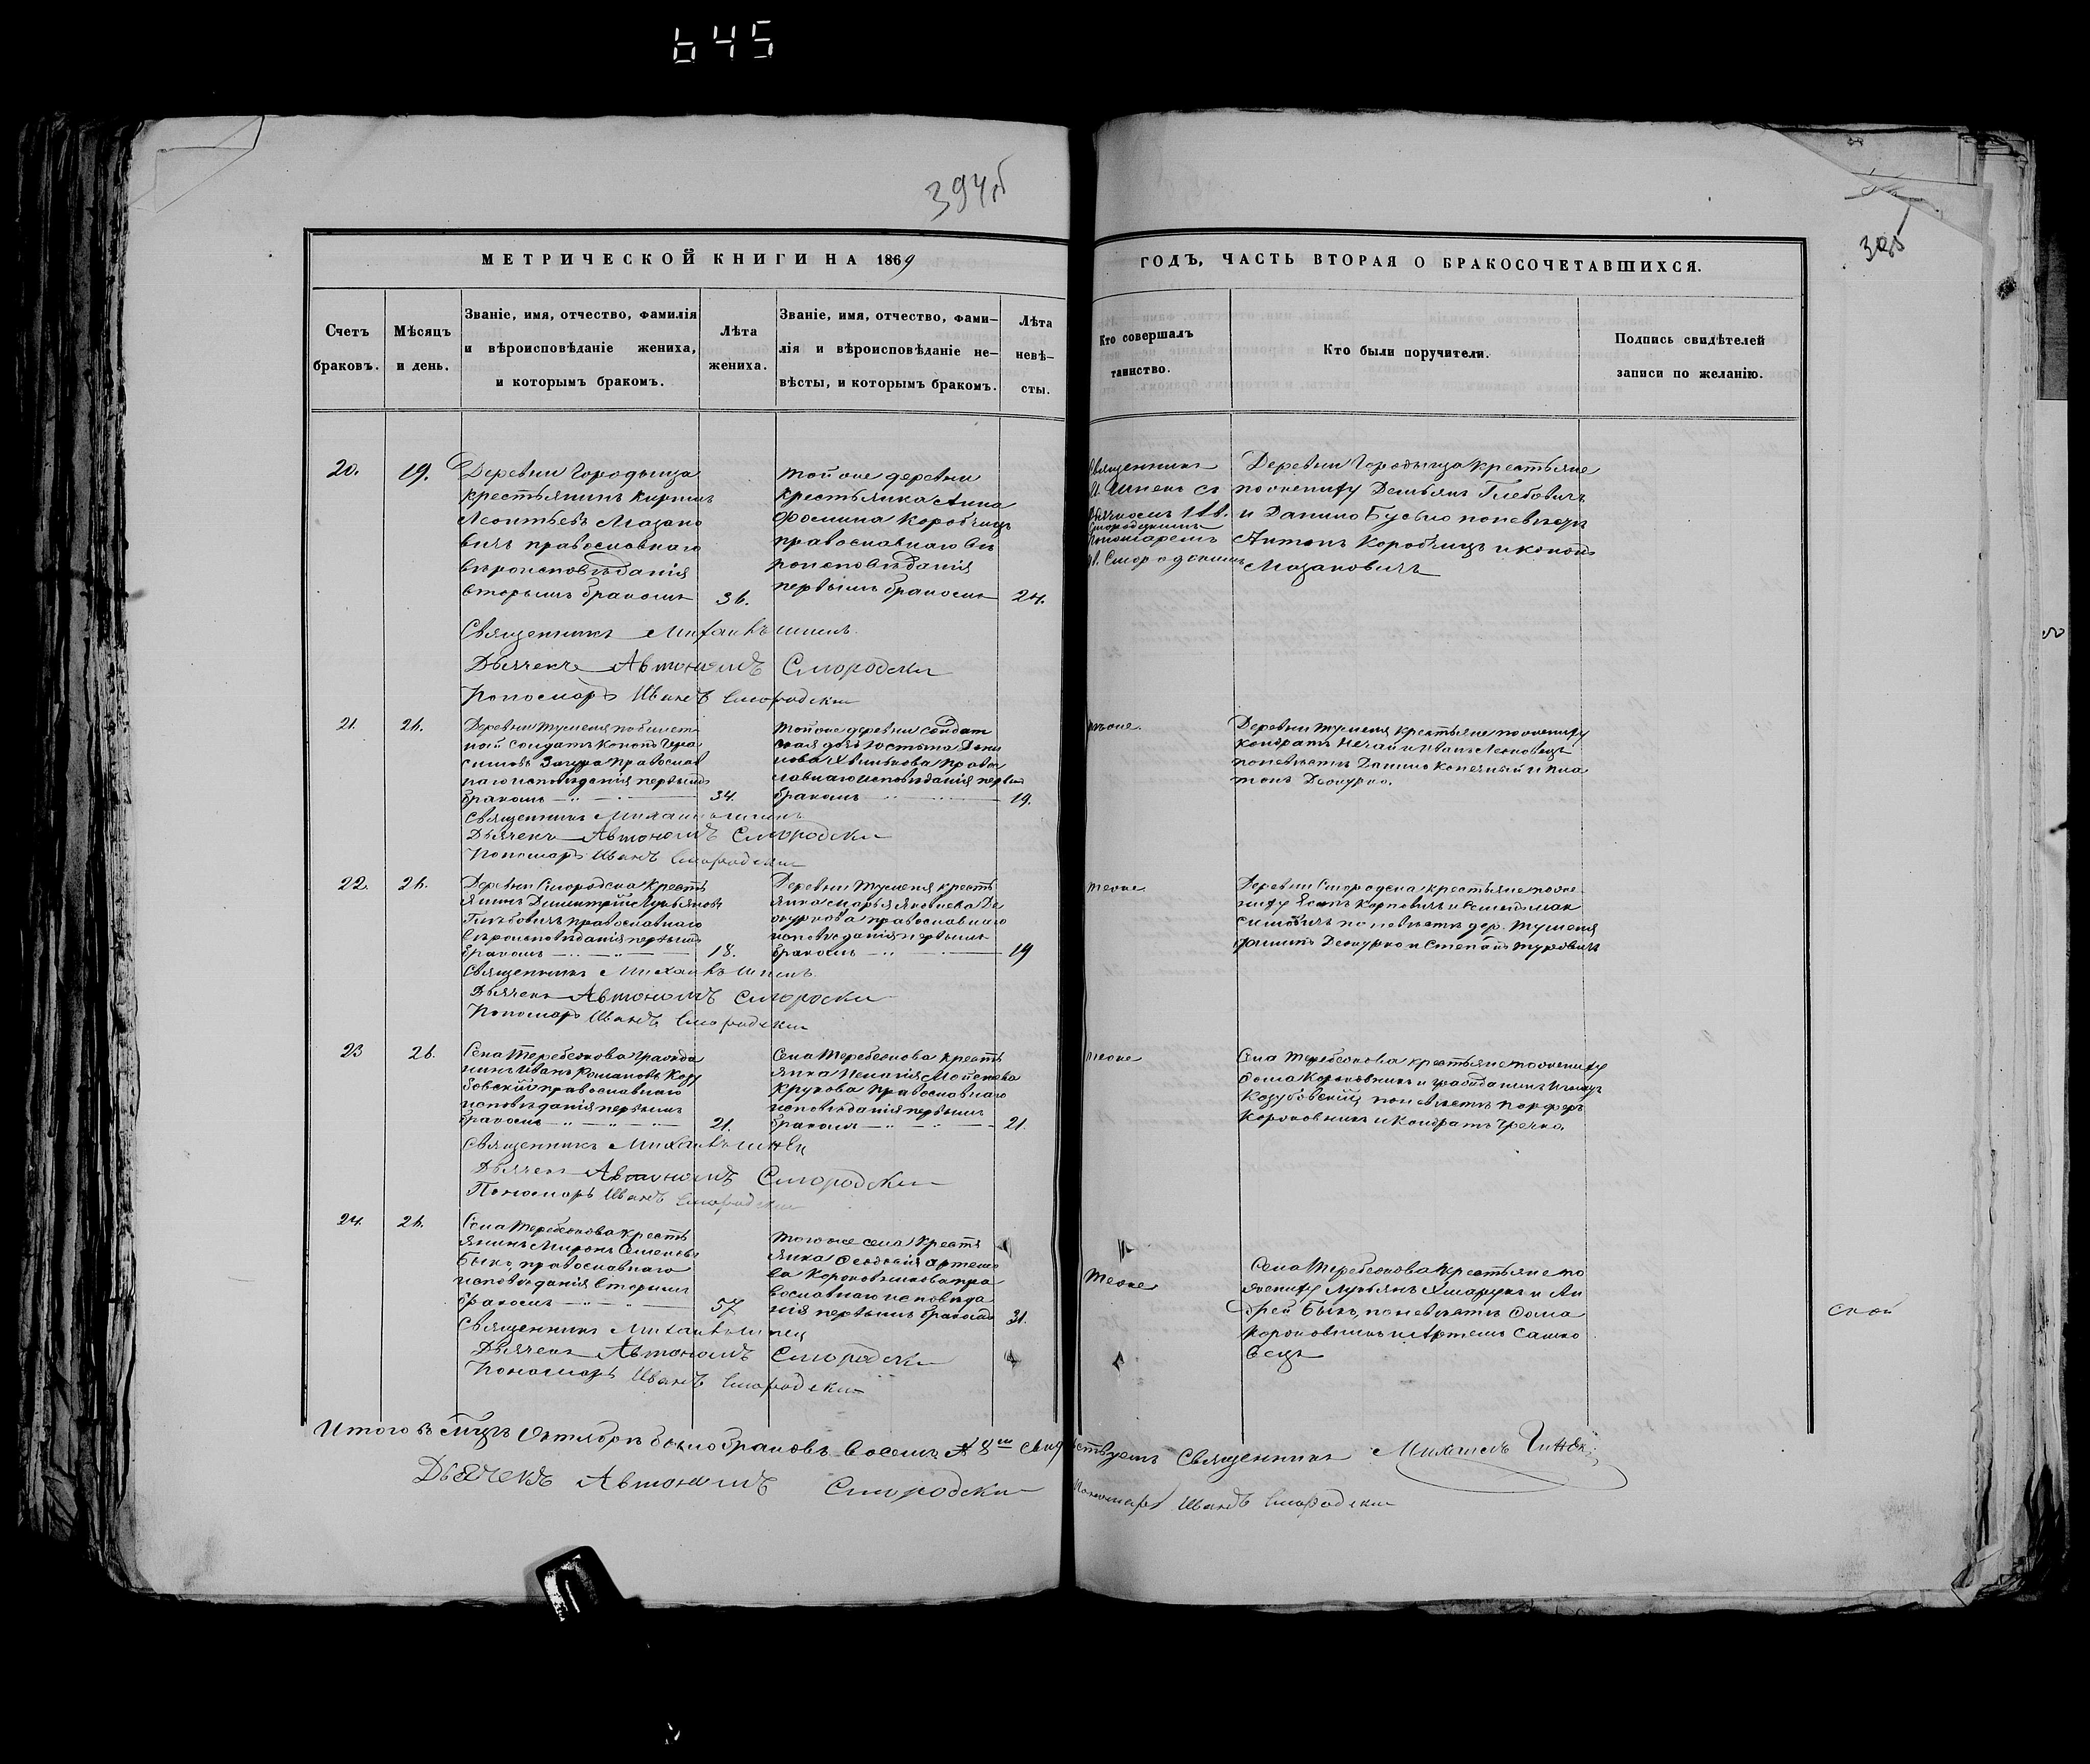 645
394об
395
МЕТРИЧЕСКОЙ КНИГИ НА 1869
ГОДЪ, ЧАСТЬ ВТОРАЯ О БРАКОСОЧЕТАВШИХСЯ.
Счетъ
браковъ.
Мѣсяцъ
и день.
Званіе, имя, отчество, фамилія
и вѣроисповѣданіе жениха,
и которымъ бракомъ.
Лѣта
жениха.
Званіе, имя, отчество, фами—
лія и вѣроисповѣданіе не—
вѣсты, и которымъ бракомъ.
Лѣта
невѣ—
сты.
Кто совершалъ
таинство.
Кто были поручители.
Подпись свидѣтелей
записи по желанію.
20.
19.
Деревни Городыща
крестьянинъ Кирилъ
Леонтьевъ Мазано
вичъ православнаго
вѣроисповѣданія
вторымъ бракомъ
36.
той же деревни
крестьянка Анна
Фомина Коробчицъ
православнаго вѣ
роисповѣданія
первымъ бракомъ
24.
Священникъ
М. Шпенъ съ
дьячкомъ Ав.
Смородскимъ
пономаремъ
Ив. Смородскимъ
Деревни Городыща крестьяне
по жениху Демьянъ Глебовичъ
и Данило Бусько по невѣстѣ
Антонъ Коробчицъ и Конон
Мазановичъ
Священникъ Михаилъ
Дьячекъ Автономъ Смородски
Пономарь Иванъ Смородски
21.
26.
Деревни Туменя по билет
ной солдатъ Кононъ Гера
симовъ православ
наго исповѣданія первымъ
бракомъ
34.
той же деревни солдат
ская дочь Юстына Дани
лова православнаго исповѣданія первымъ
бракомъ
19.
тѣже.
Деревни Туменя крестьяне по жениху
Кондратъ Нечай и Иванъ
по невѣстѣ Данило и Пла
тонъ Деюурко.
Священникъ Михаилъ
Дьячекъ Автономъ Смородски
Пономарь Иванъ Смородски
22.
26.
Деревни Смородска кресть
янинъ Димитрій Лукьяновъ
Глѣбовичъ православнаго
вѣроисповѣданія первымъ
бракомъ
18.
Деревни Туменя кресть
янка Марья Яковлева
православнаго
исповѣданія первымъ
бракомъ
19
теже
Деревни Смородска крестьяне по же
ниху Карповичъ и Мак
симовичъ по невѣстѣ дер. Туменя
и Степанъ Туровичъ
Священникъ Михаилъ
Дьячекъ Автономъ Смороски
Пономарь Иванъ Смородски
23
26.
Села Теребежова гражда
нинъ Иванъ Романовъ Козу
бовскій православнаго
исповѣданія первымъ
бракомъ
21.
Села Теребежова кресть
янка Пелагія Мойсеева
Крукова православнаго
исповѣданія первымъ
бракомъ
21.
теже
Села Теребежова крестьяне по жениху
Фома Короховникъ и гражданинъ Игнатъ
Козубовскій по невѣстѣ
и Кондратъ Гречко.
Священникъ Михаилъ
Дьячекъ Автономъ Смородски
Пономарь Иванъ Смородски
24.
26.
Села Теребежова кресть
янинъ Миронъ Семеновъ
Быкъ православнаго
исповѣданія вторымъ
бракомъ
57
того же села кресть
янка Феодосія Артемо
ва пра
вославнаго исповѣда
нія первымъ бракомъ
31.
теже
Села Теребежова крестьяне по
жениху Лукьянъ Хмарукъ и Ан
дрей Быкъ, по невѣстѣ Фома
и Артемъ Сашко
вецъ
Священникъ Михаилъ
Дьячекъ Автономъ Смородски
Пономарь Иванъ Смородски
ской
Итого въ мцѣ Октябрѣ было браковъ восемь № 8 свидѣтельствуемъ Священникъ Михаилъ
Дьячекъ Автономъ Смородски Пономарь Иванъ Смородски